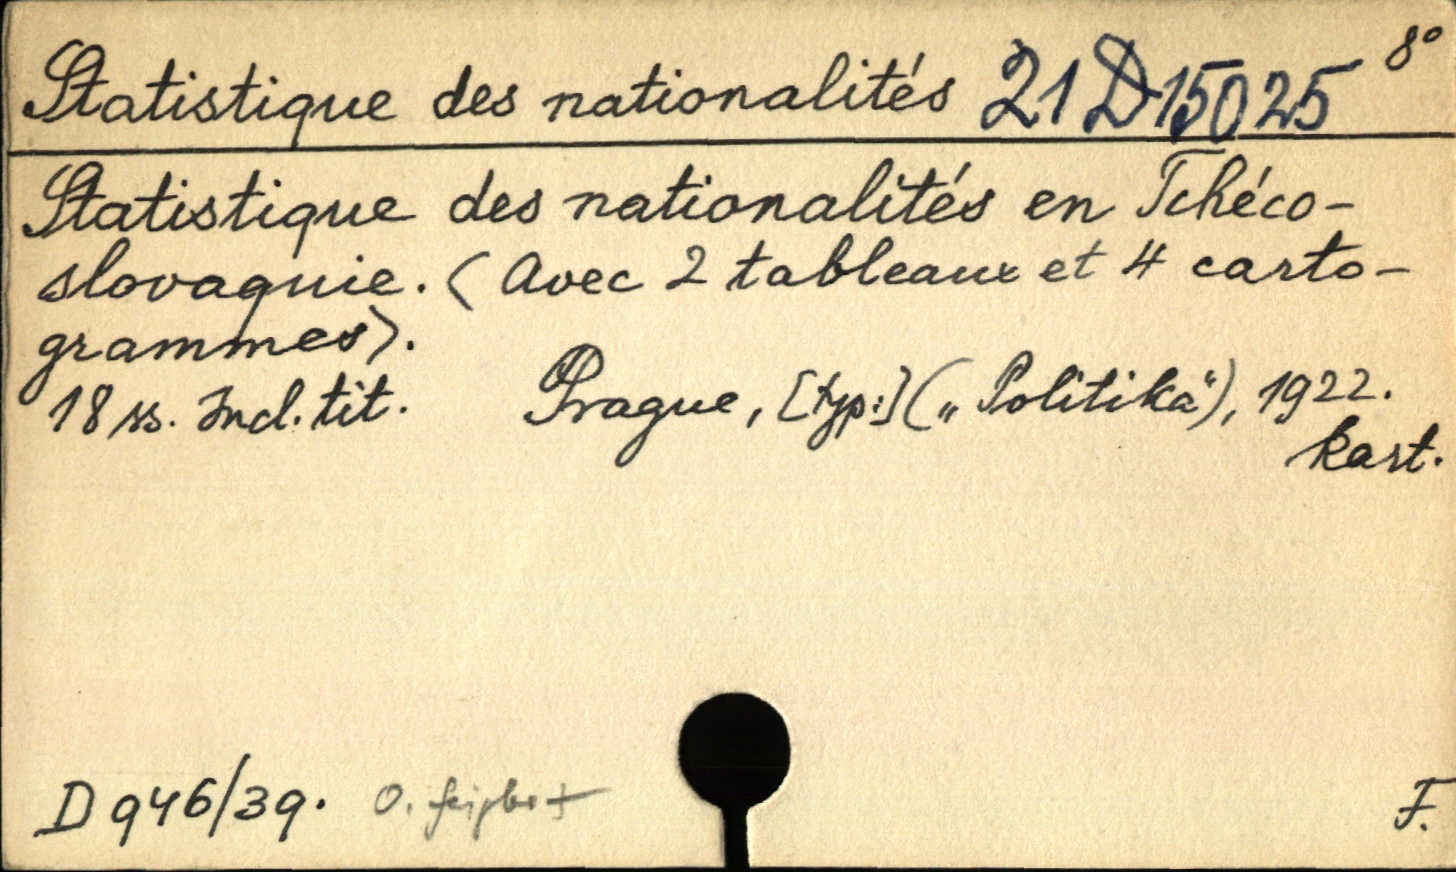 Statistique des nationalités 21 D 15025 8°
Statistique des nationalités en Tchéco-
slovaquie. (Avec 2 tableaux et 4 carto-
grammes).
18 ss. Incl. tit. Prague, [typ:] („Politika“), 1922.
kart.
D 946/39. O.
F.